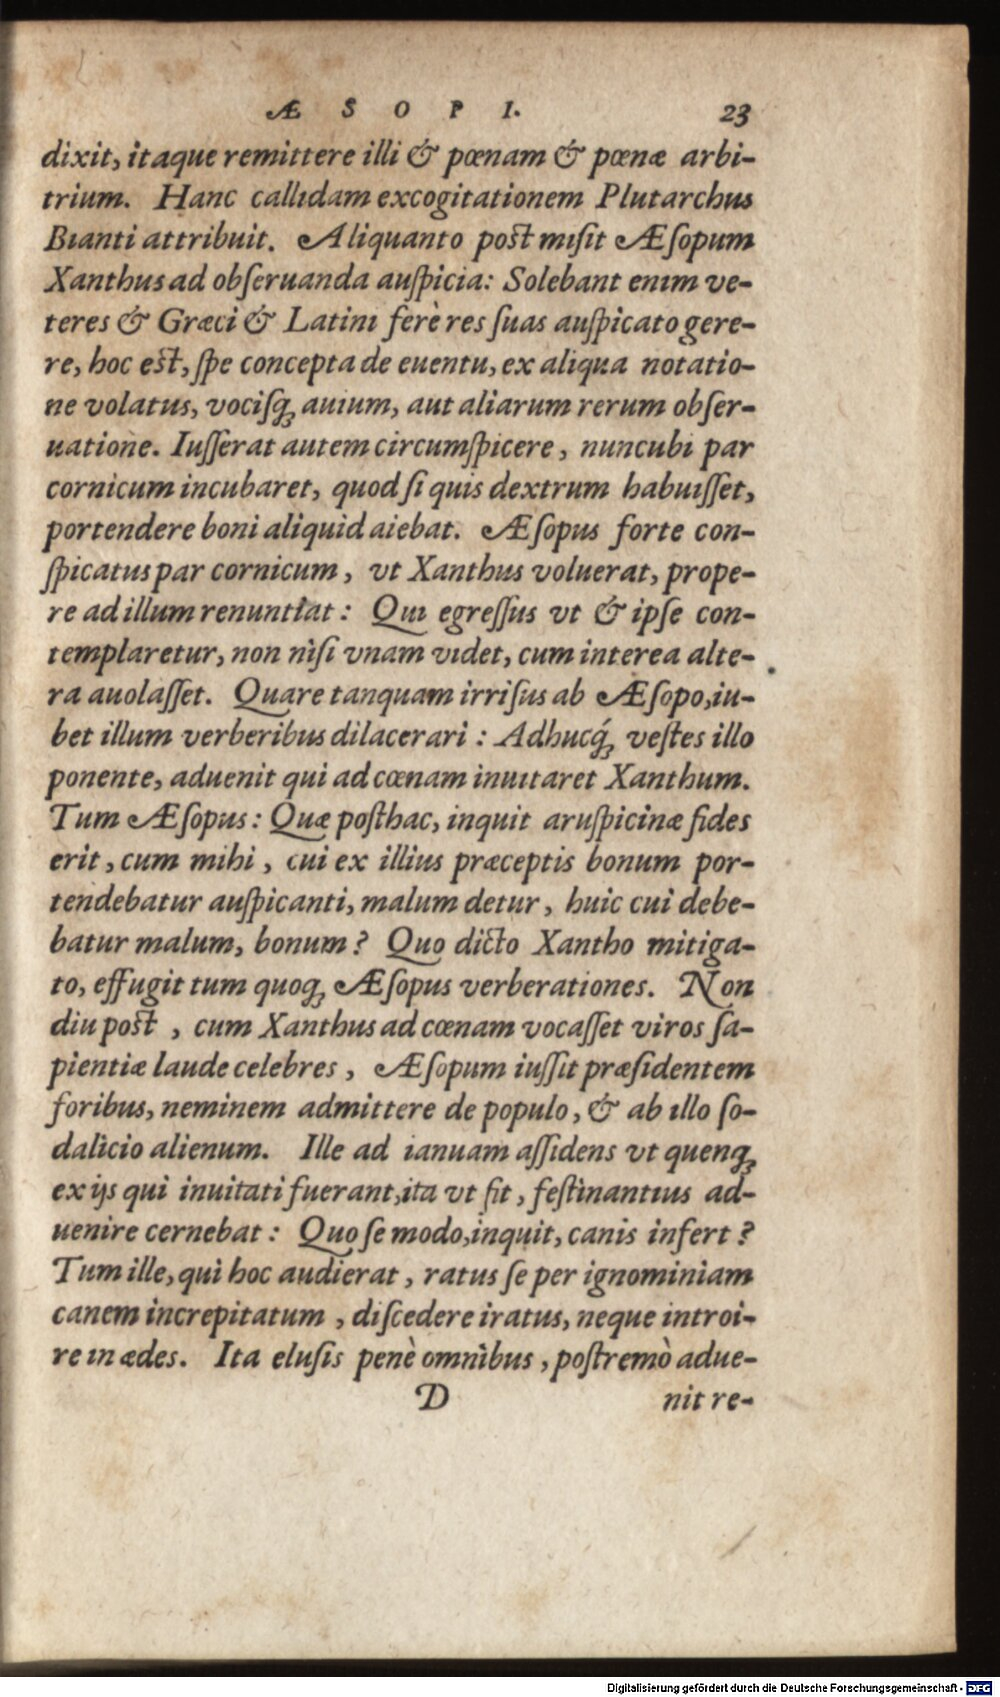 ÆSOPI. 23
dixit, itaque remittere illi & pœnam & pœnæ arbi-
trium. Hanc callidam excogitationem Plutarchus
Bianti attribuit. Aliquanto poſt miſit Æſopum
Xanthus ad obſeruanda auſpicia: Solebant enim ve-
teres & Græci & Latini ferè res ſuas auſpicato gere-
re, hoc eſt, ſpe concepta de euentu, ex aliqua notatio-
ne volatus, vociſq; auium, aut aliarum rerum obſer-
uatione. Iuſſerat autem circumſpicere, nuncubi par
cornicum incubaret, quod ſi quis dextrum habuiſſet,
portendere boni aliquid aiebat. Æſopus forte con-
ſpicatus par cornicum, vt Xanthus voluerat, prope-
re ad illum renuntiat: Qui egreſſus vt & ipſe con-
templaretur, non niſi vnam videt, cum interea alte-
ra auolaſſet. Quare tanquam irriſus ab Æſopo, iu-
bet illum verberibus dilacerari: Adhucq́; veſtes illo
ponente, aduenit qui ad cœnam inuitaret Xanthum.
Tum Æſopus: Quæ poſthac, inquit aruſpicinæ fides
erit, cum mihi, cui ex illius præceptis bonum por-
tendebatur auſpicanti, malum detur, huic cui debe-
batur malum, bonum? Quo dicto Xantho mitiga-
to, effugit tum quoq; Æſopus verberationes. Non
diu poſt, cum Xanthus ad cœnam vocaſſet viros ſa-
pientiæ laude celebres, Æſopum iuſſit præſidentem
foribus, neminem admittere de populo, & ab illo ſo-
dalicio alienum. Ille ad ianuam aſſidens vt quenq;
ex ijs qui inuitati fuerant, ita vt fit, feſtinantius ad-
uenire cernebat: Quo ſe modo, inquit, canis infert?
Tum ille, qui hoc audierat, ratus ſe per ignominiam
canem increpitatum, diſcedere iratus, neque introi-
re in ædes. Ita eluſis penè omnibus, poſtremò adue-
D nit re-
Digitalisierung gefördert durch die Deutsche Forschungsgemeinschaft - DFG